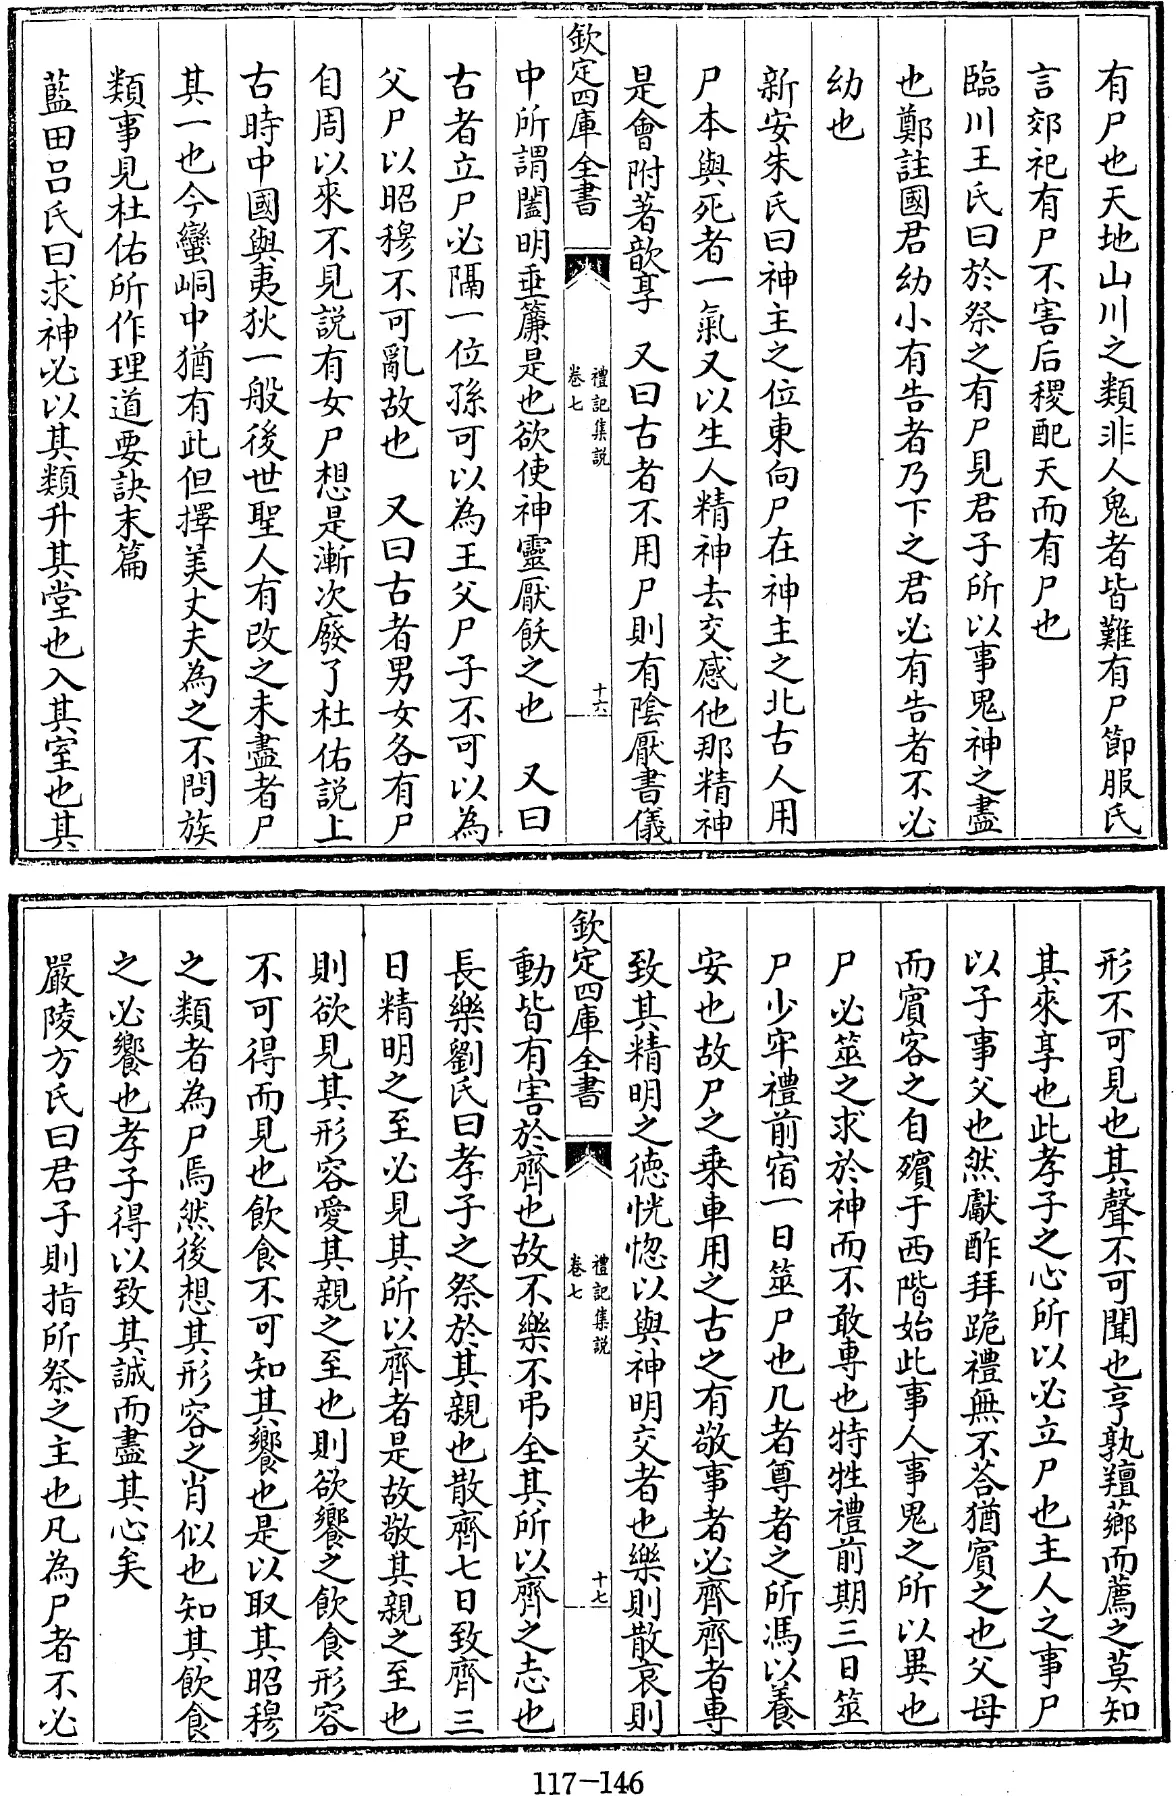 有尸也天地山川之類非人鬼者皆難有尸節服氏
言郊祀有尸不害后稷配天而有尸也
臨川王氏曰於祭之有尸見君子所以事鬼神之盡
也鄭註國君幼小有告者乃下之君必有告者不必
幼也
新安朱氏曰神主之位東向尸在神主之北古人用
尸本與死者一氣又以生人精神去交感他那精神
是會附著歆享 又曰古者不用尸則有陰厭書儀
欽定四庫全書
禮記集説
卷七
十六
中所謂闔明垂簾是也欲使神靈厭飫之也 又曰
古者立尸必隔一位孫可以為王父尸子不可以為
父尸以昭穆不可亂故也 又曰古者男女各有尸
自周以來不見説有女尸想是漸次廢了杜佑説上
古時中國與夷狄一般後世聖人有改之未盡者尸
其一也今蠻峒中猶有此但擇美丈夫為之不問族
類事見杜佑所作理道要訣末篇
藍田呂氏曰求神必以其類升其堂也入其室也其
形不可見也其聲不可聞也亨孰羶薌而薦之莫知
其來享也此孝子之心所以必立尸也主人之事尸
以子事父也然獻酢拜跪禮無不荅猶賓之也父母
而賓客之自殯于西階始此事人事鬼之所以異也
尸必筮之求於神而不敢專也特牲禮前期三日筮
尸少牢禮前宿一日筮尸也几者尊者之所馮以養
安也故尸之乗車用之古之有敬事者必齊齊者專
致其精明之德恍惚以與神明交者也樂則散哀則
欽定四庫全書
禮記集説
卷七
十七
動皆有害於齊也故不樂不弔全其所以齊之志也
長樂劉氏曰孝子之祭於其親也散齊七日致齊三
日精明之至必見其所以齊者是故敬其親之至也
則欲見其形容愛其親之至也則欲饗之飲食形容
不可得而見也飲食不可知其饗也是以取其昭穆
之類者為尸焉然後想其形容之肖似也知其飲食
之必饗也孝子得以致其誠而盡其心矣
嚴陵方氏曰君子則指所祭之主也凡為尸者不必
117-146